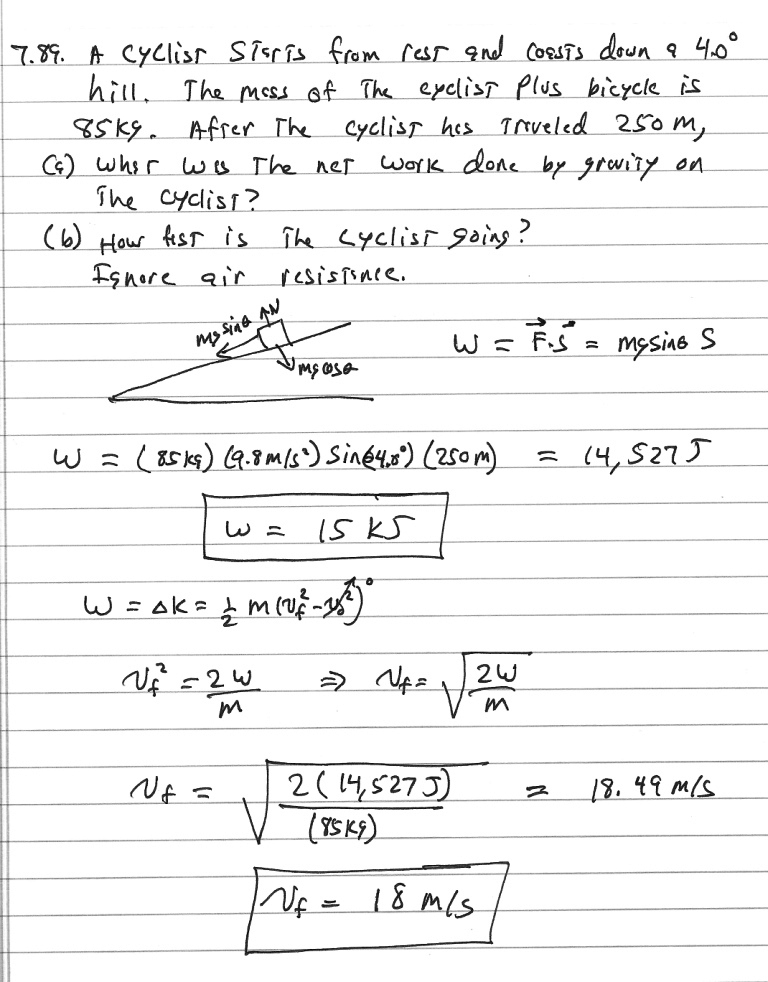 7.89. A cyclist starts from rest and coasts down a 4.0°
hill. The mass of the cyclist plus bicycle is
85kg. After the cyclist has traveled 250 m,
(a) what was the net work done by gravity on
the cyclist?
(b) How fast is the cyclist going?
Ignore air resistance.
mg sinθ N
mg cosθ
W = F⃗·S⃗ = mg sinθ S
W = (85 kg) (9.8 m/s²) Sin(4.0°) (250m) = 14,527 J
W = 15 kJ
W = ΔK = 1/2 m (v_f² - v_0²) 0
v_f² = 2W/m ⇒ v_f = √(2W/m)
v_f = √(2(14,527 J)/(85kg)) = 18.49 m/s
v_f = 18 m/s